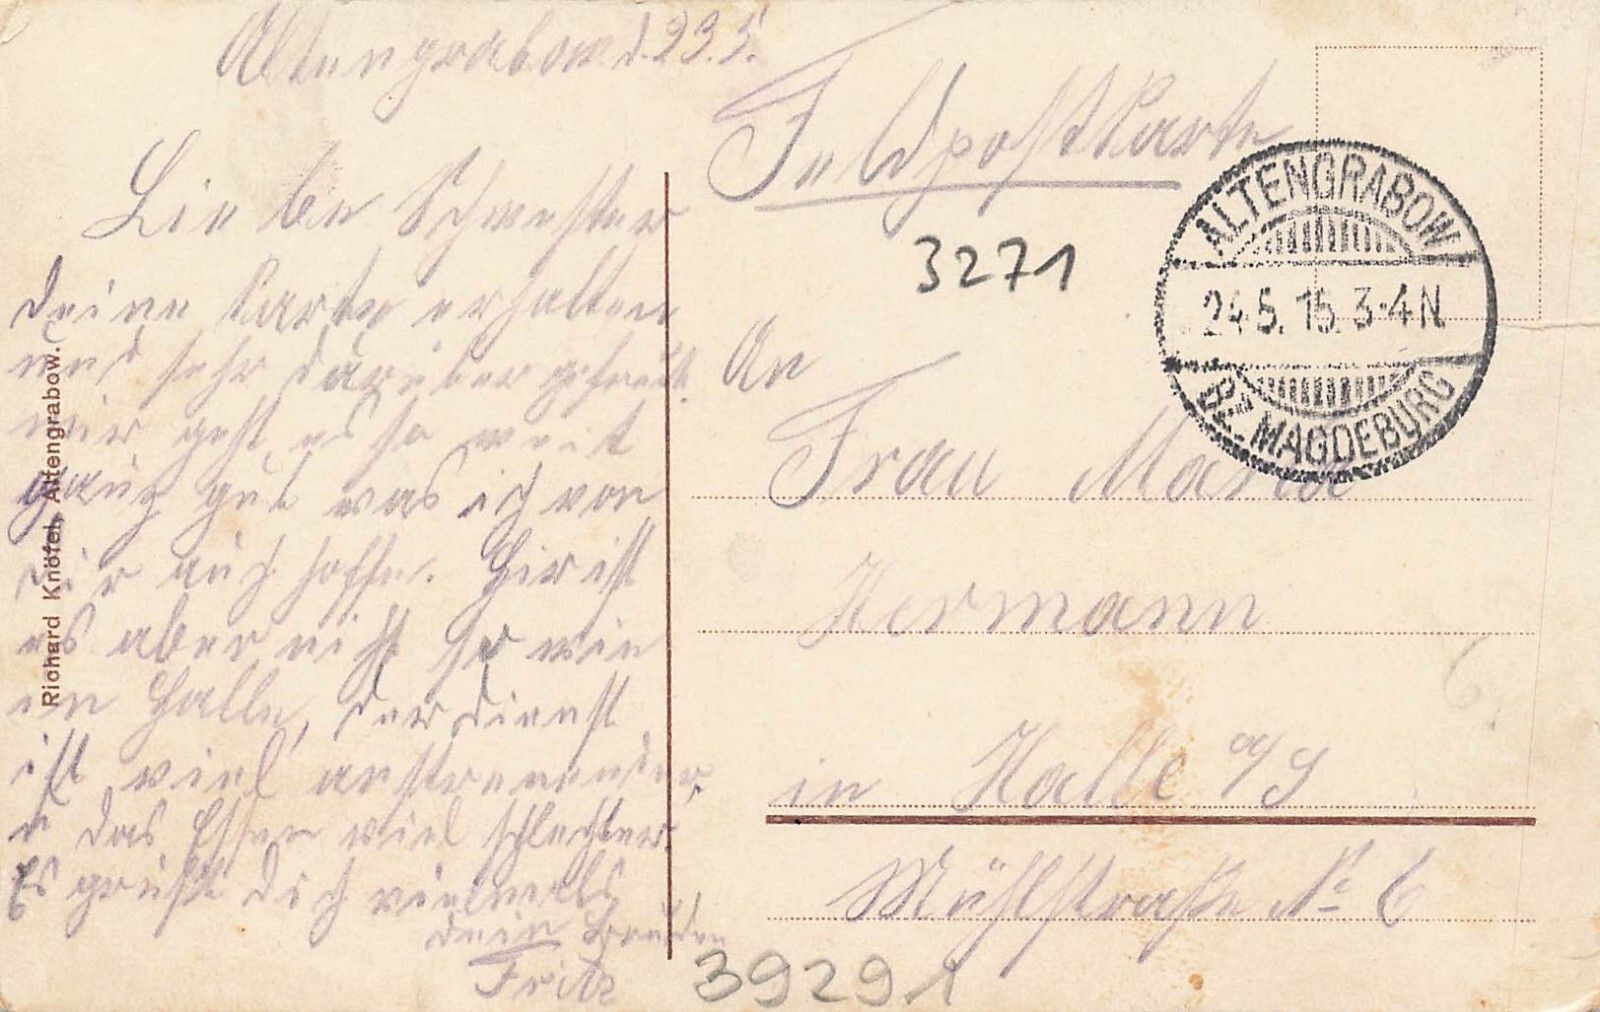 Altengrabow d. 23.5.
Liebe Schwester
deine Karte erhalten
und sehr darüber gefreut.
mir geht es so weit
ganz gut was ich von
dir auch hoffe. Hir ist
es aber nicht so wie
in Halle, der dienst
ist viel anstrenender,
u das Essen viel schlechter.
Es grüßt dich vielmals
dein Bruder
Fritz
Richard Knöfel, Altengrabow.
Feldpostkarte
3271
ALTENGRABOW
24.5.15. 3-4N
Bz. MAGDEBURG
An
Frau Marta
Hermann
in Halle a/S
Mühlstraße No 6
39291